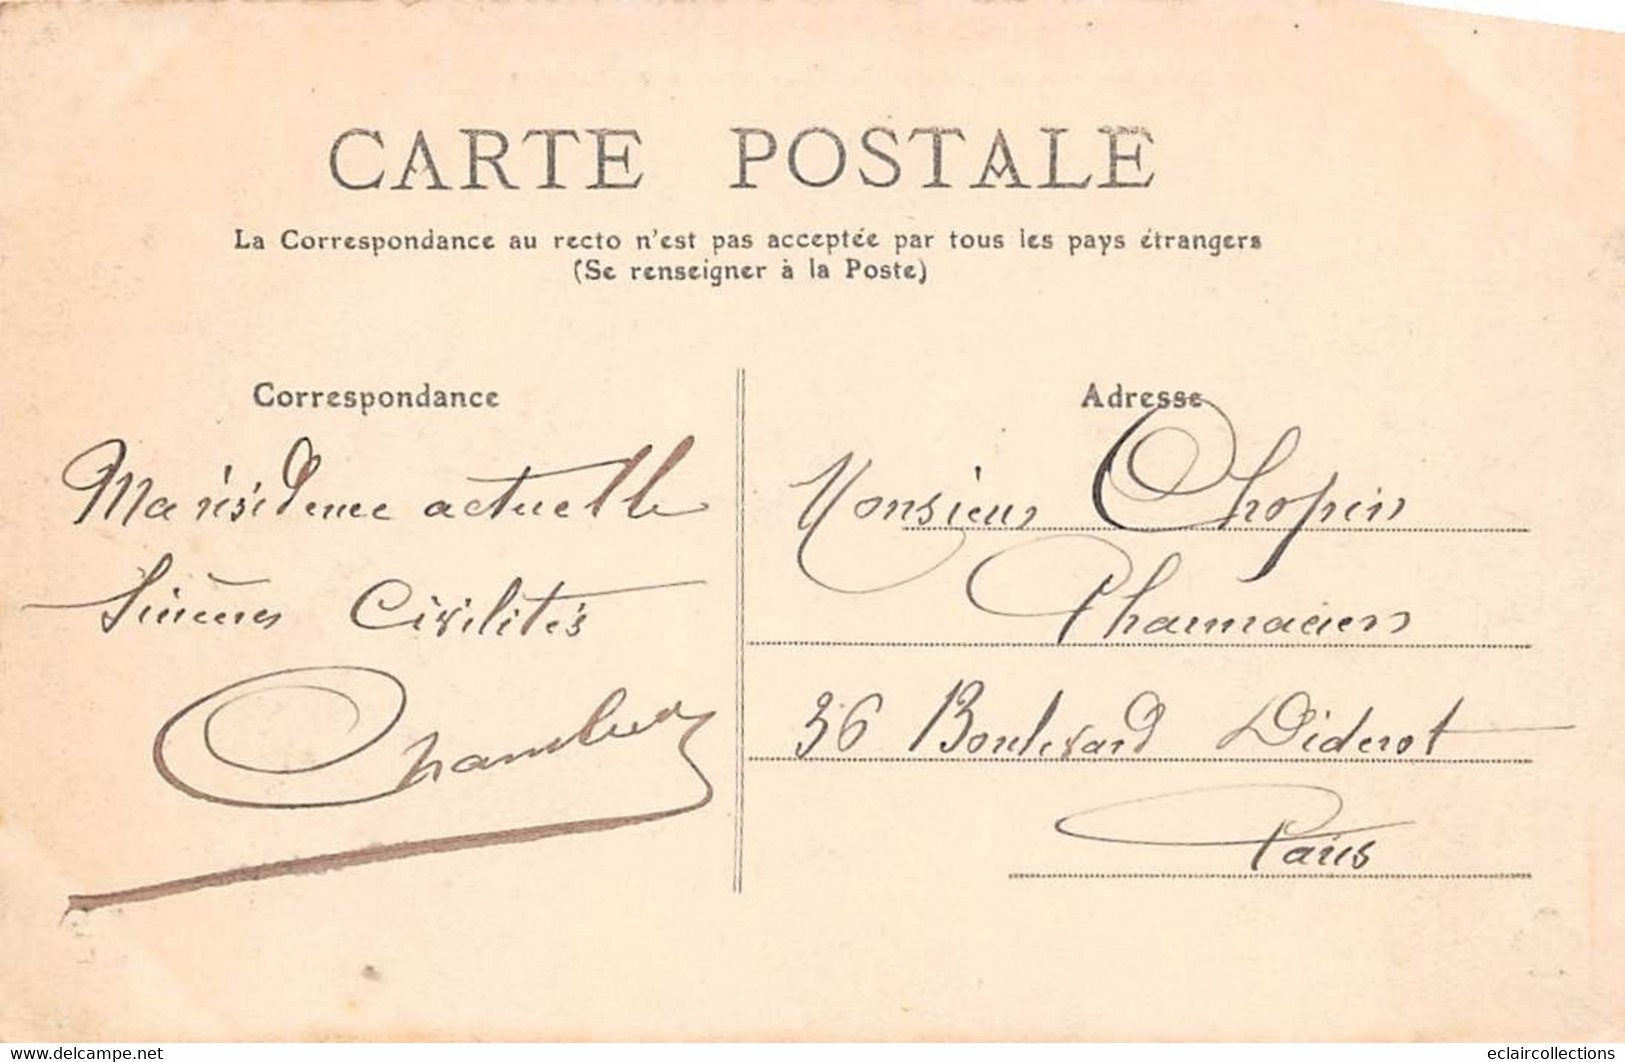 CARTE POSTALE
La Correspondance au recto n'est pas acceptée par tous les pays étrangers
(Se renseigner à la Poste)
Correspondance
Ma résidence actuelle
Sincères Civilités
Adresse
Monsieur Chopin
Pharmacien
36 Boulevard Diderot
Paris
www.delcampe.net
eclaircollections